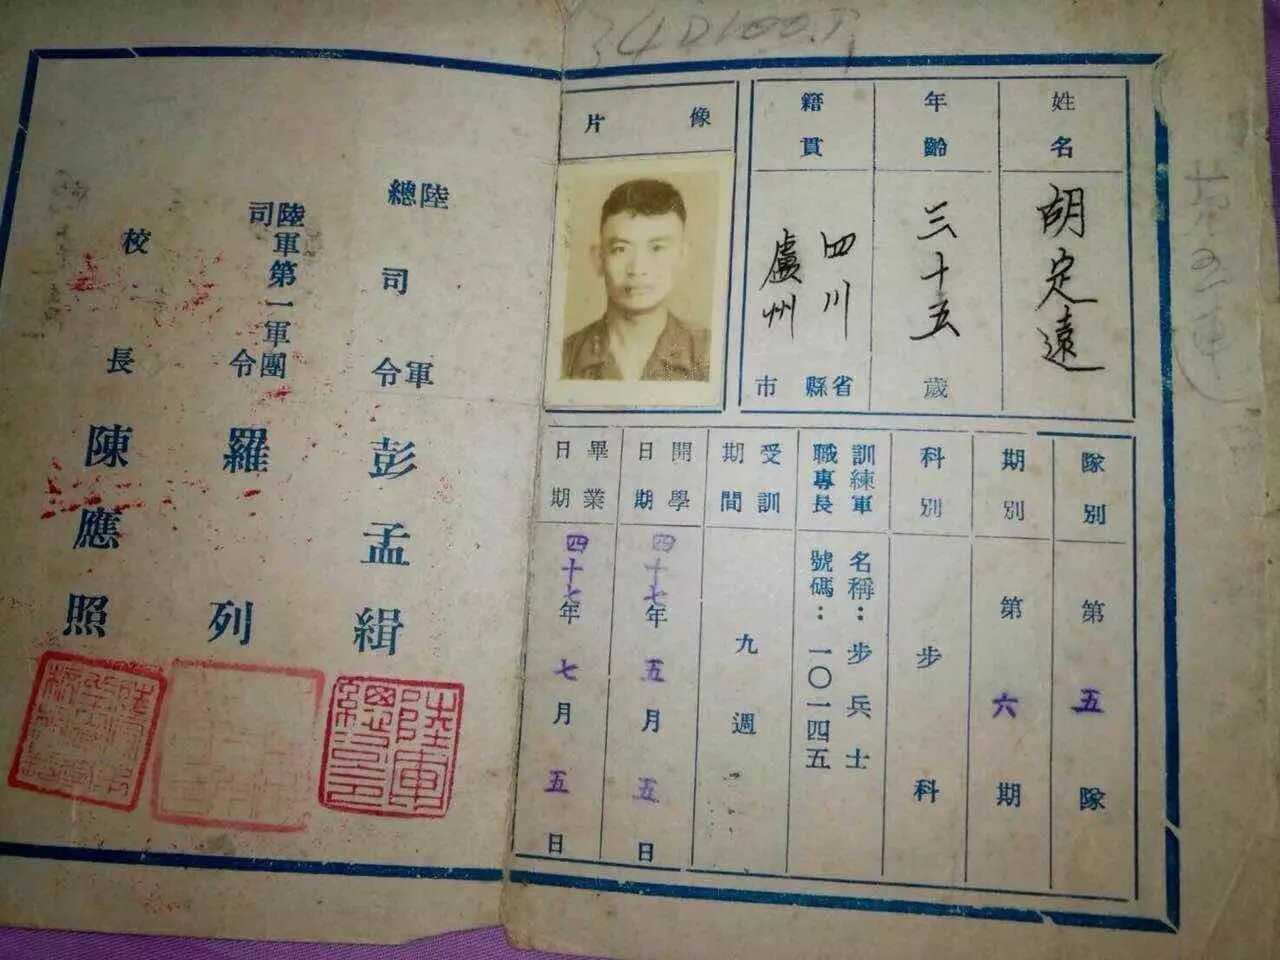 34D100.P
姓名
胡定遠
年齡
三十五
歲
籍貫
四川
盧州
省縣
市
像片
隊別
第五隊
期別
第六期
科別
步科
訓練軍
職專長
名稱：步兵士
號碼：一〇一四五
受訓
期間
九週
開學
日期
四十七年五月五日
畢業
日期
四十七年七月五日
陸軍
總司令
彭孟緝
陸軍第一軍團
司令
羅列
校長
陳應照